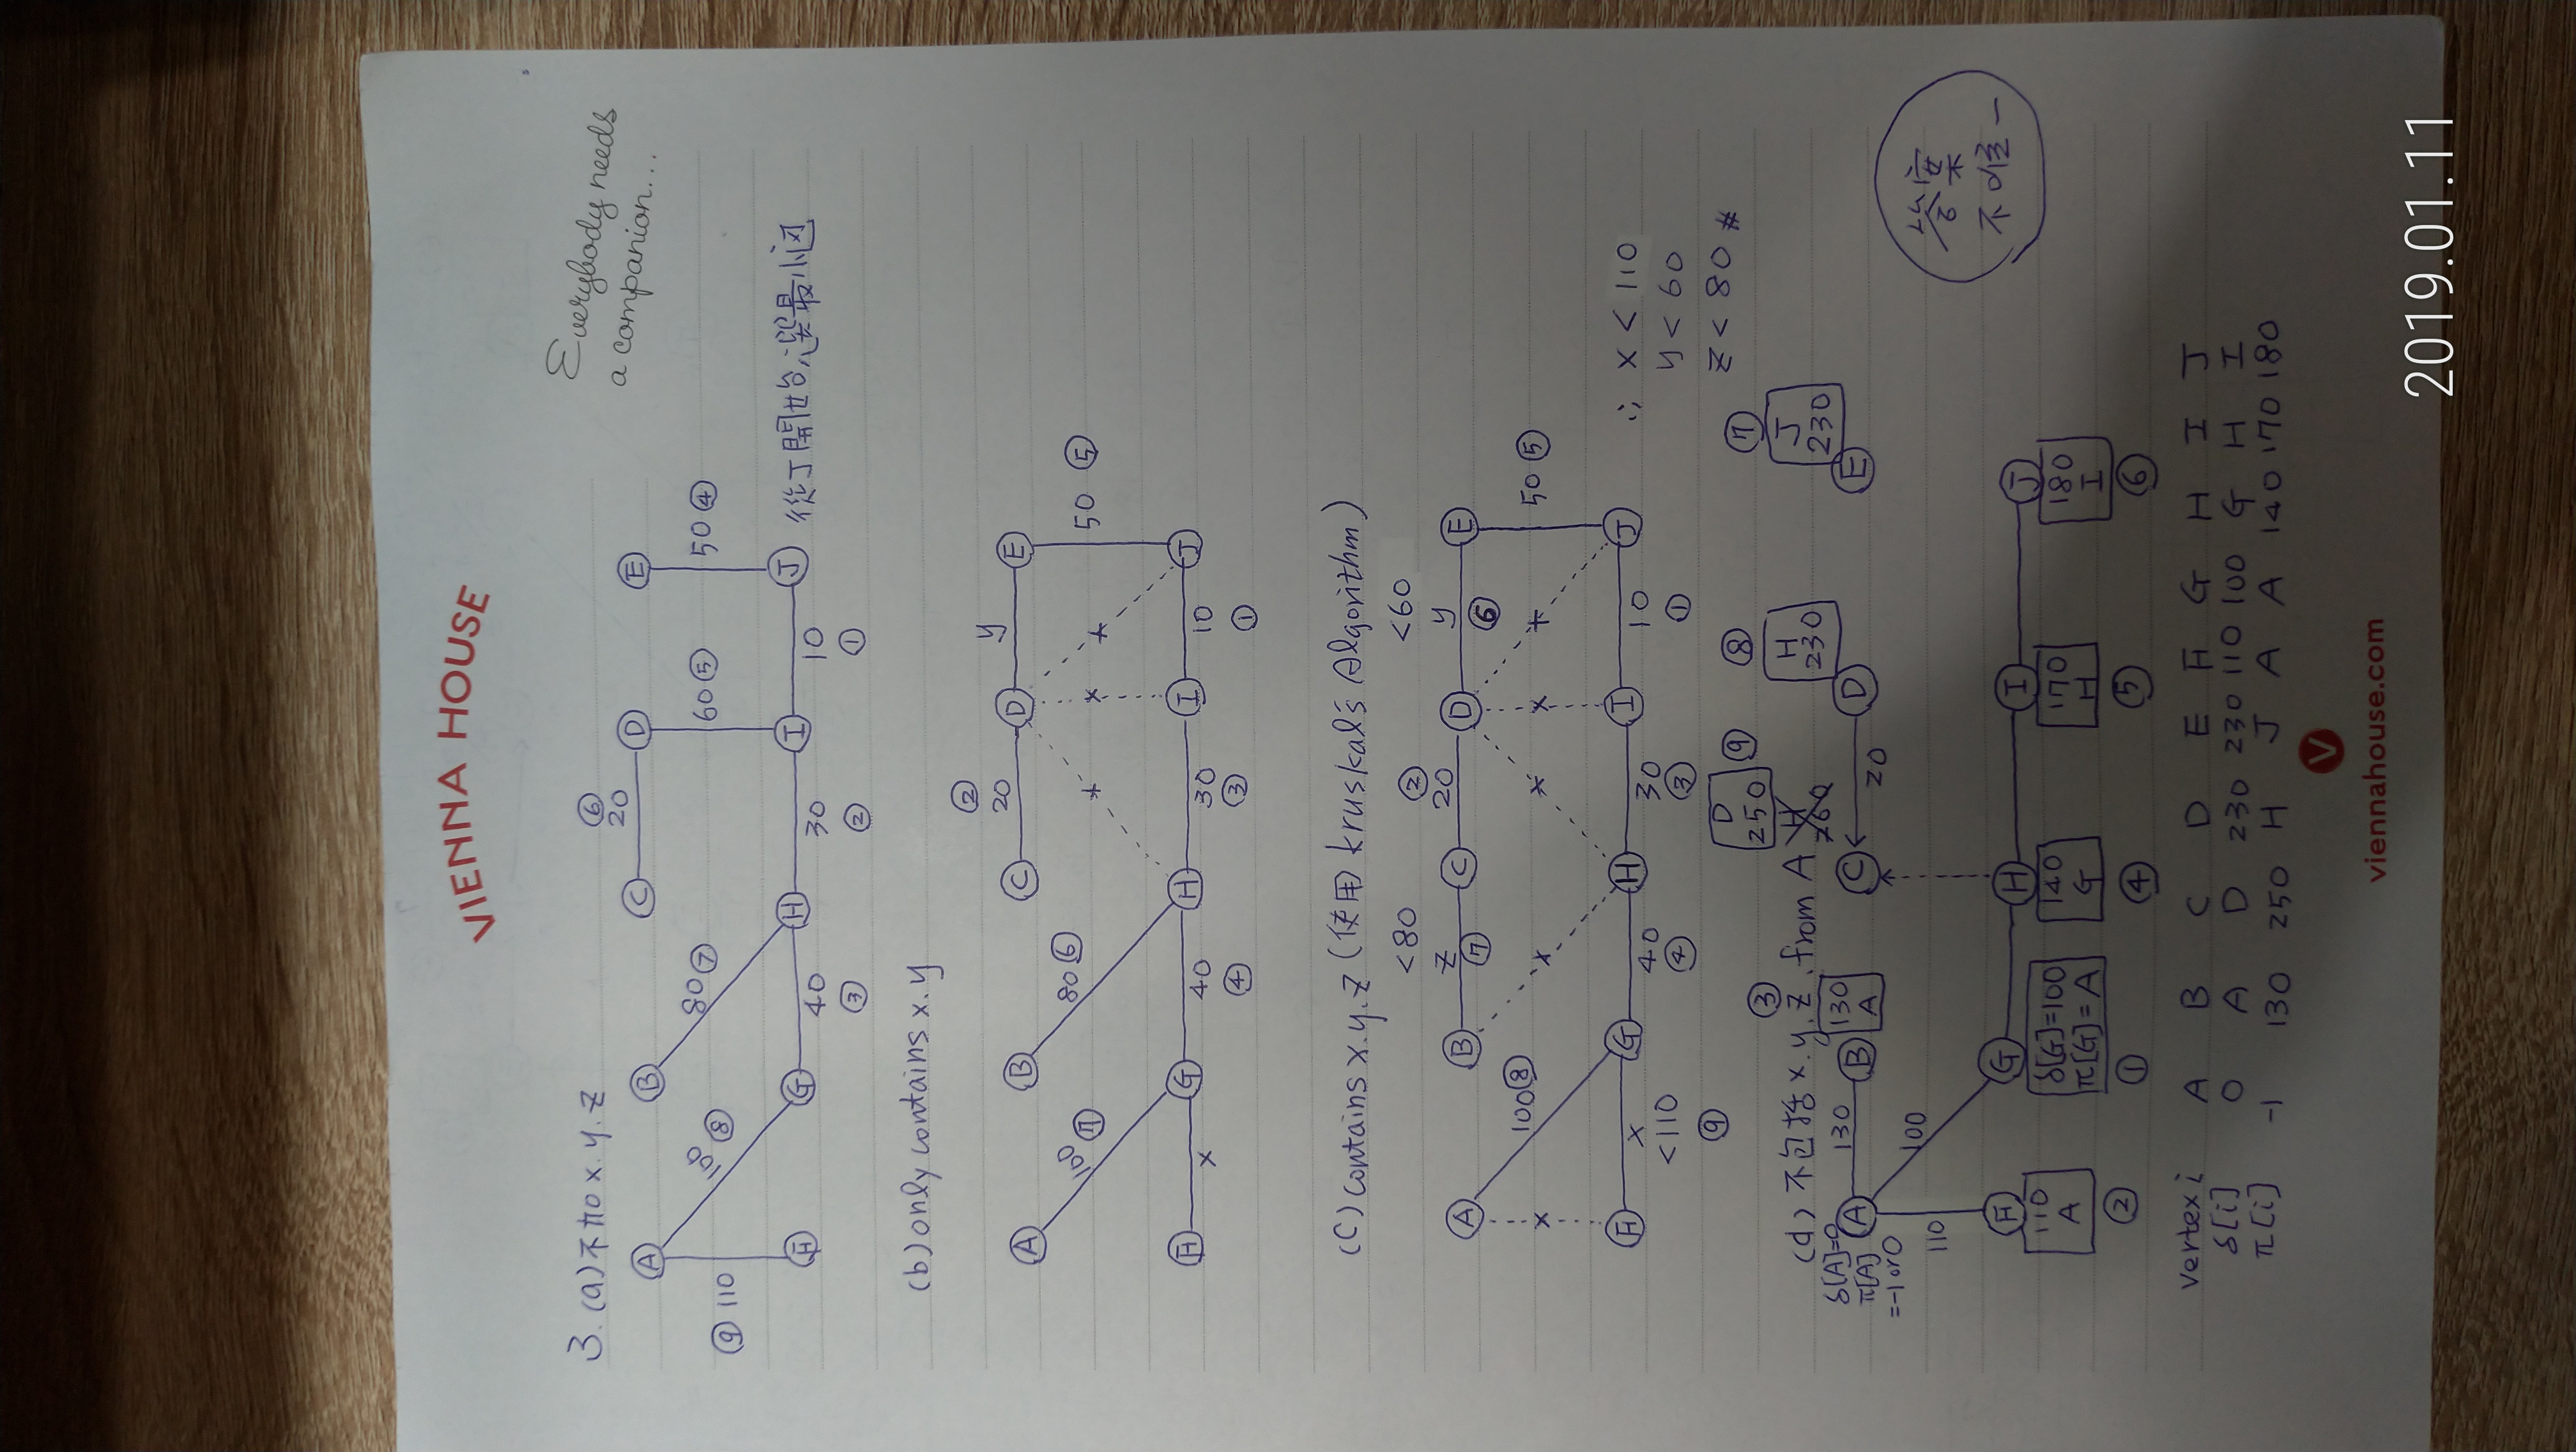 VIENNA HOUSE
Everybody needs
a companion...
3. (a) 不加 x. y. z
⑥
20
A B C D E
⑨ 110 100 ⑧ 80 ⑦ 60 ⑤ 50 ④
F G H I J 從J開始,選最小边
40 30 10
③ ② ①
(b) only contains x. y
②
20 y
A B C D E
100 ⑦ 80 ⑥ 50 ⑤
F G H I J
x 40 30 10
④ ③ ①
(c) contains x. y. z (使用 kruskal's Algorithm)
<80 ② <60
z 20 y
A B C D E
⑦ ⑥
100 ⑧ 50 ⑤
F G H I J
x 40 30 10
<110 ④ ③ ①
⑨
∴ x < 110
y < 60
z < 80 #
D
250 ⑨ ⑧ ⑦
③
(d) 不包括 x. y. z. from A H
260
H
230
J
230
δ[A]=0
π[A]
=-1 or 0
A 130 B 130
A
C 20 D E
110 100
F G H I J
110
A
δ[G]=100
π[G]=A
140
G
170
H
180
I
② ① ④ ⑤ ⑥
答案
不唯一
vertex i A B C D E F G H I J
δ[i] 0 A D 230 230 110 100 G H I
π[i] -1 130 250 H J A A 140 170 180
V
viennahouse.com
2019.01.11